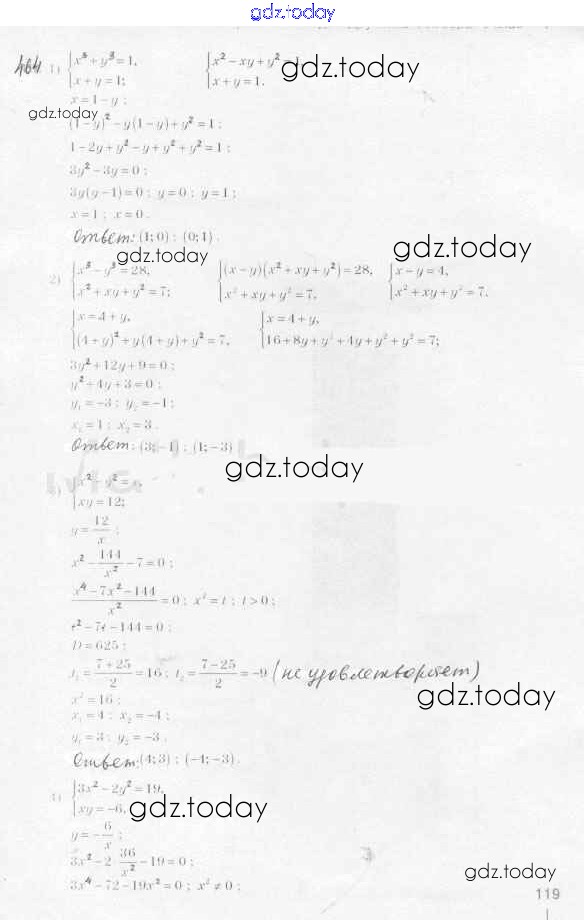 gdz.today
464 1) {x³ + y³ = 1, {x² − xy + y² = 1, gdz.today
{x + y = 1; {x + y = 1.
x = 1 − y ;
gdz.today
(1 − y)² − y(1 − y) + y² = 1 ;
1 − 2y + y² − y + y² + y² = 1 ;
3y² − 3y = 0 ;
3y(y − 1) = 0 ; y = 0 ; y = 1 ;
x = 1 ; x = 0 .
Ответ: (1; 0) ; (0; 1) .
gdz.today gdz.today
2) {x³ − y³ = 28, {(x − y)(x² + xy + y²) = 28, {x − y = 4,
{x² + xy + y² = 7; {x² + xy + y² = 7, {x² + xy + y² = 7.
{x = 4 + y, {x = 4 + y,
{(4 + y)² + y(4 + y) + y² = 7, {16 + 8y + y² + 4y + y² + y² = 7;
3y² + 12y + 9 = 0 ;
y² + 4y + 3 = 0 ;
y₁ = −3 ; y₂ = −1 ;
x₁ = 1 ; x₂ = 3 .
Ответ: (3; −1) ; (1; −3)
gdz.today
{x² − y² =
{xy = 12;
y = 12/x ;
x² − 144/x² − 7 = 0 ;
(x⁴ − 7x² − 144)/x² = 0 ; x² = t ; t > 0 ;
t² − 7t − 144 = 0 ;
D = 625 ;
t₁ = (7 + 25)/2 = 16 ; t₂ = (7 − 25)/2 = −9 (не удовлетворяет)
gdz.today
x² = 16 ;
x₁ = 4 ; x₂ = −4 ;
y₁ = 3 ; y₂ = −3 .
Ответ: (4; 3) ; (−4; −3) .
4) {3x² − 2y² = 19,
{xy = −6, gdz.today
y = −6/x ;
3x² − 2 · 36/x² − 19 = 0 ;
gdz.today
3x⁴ − 72 − 19x² = 0 ; x² ≠ 0 ;
119